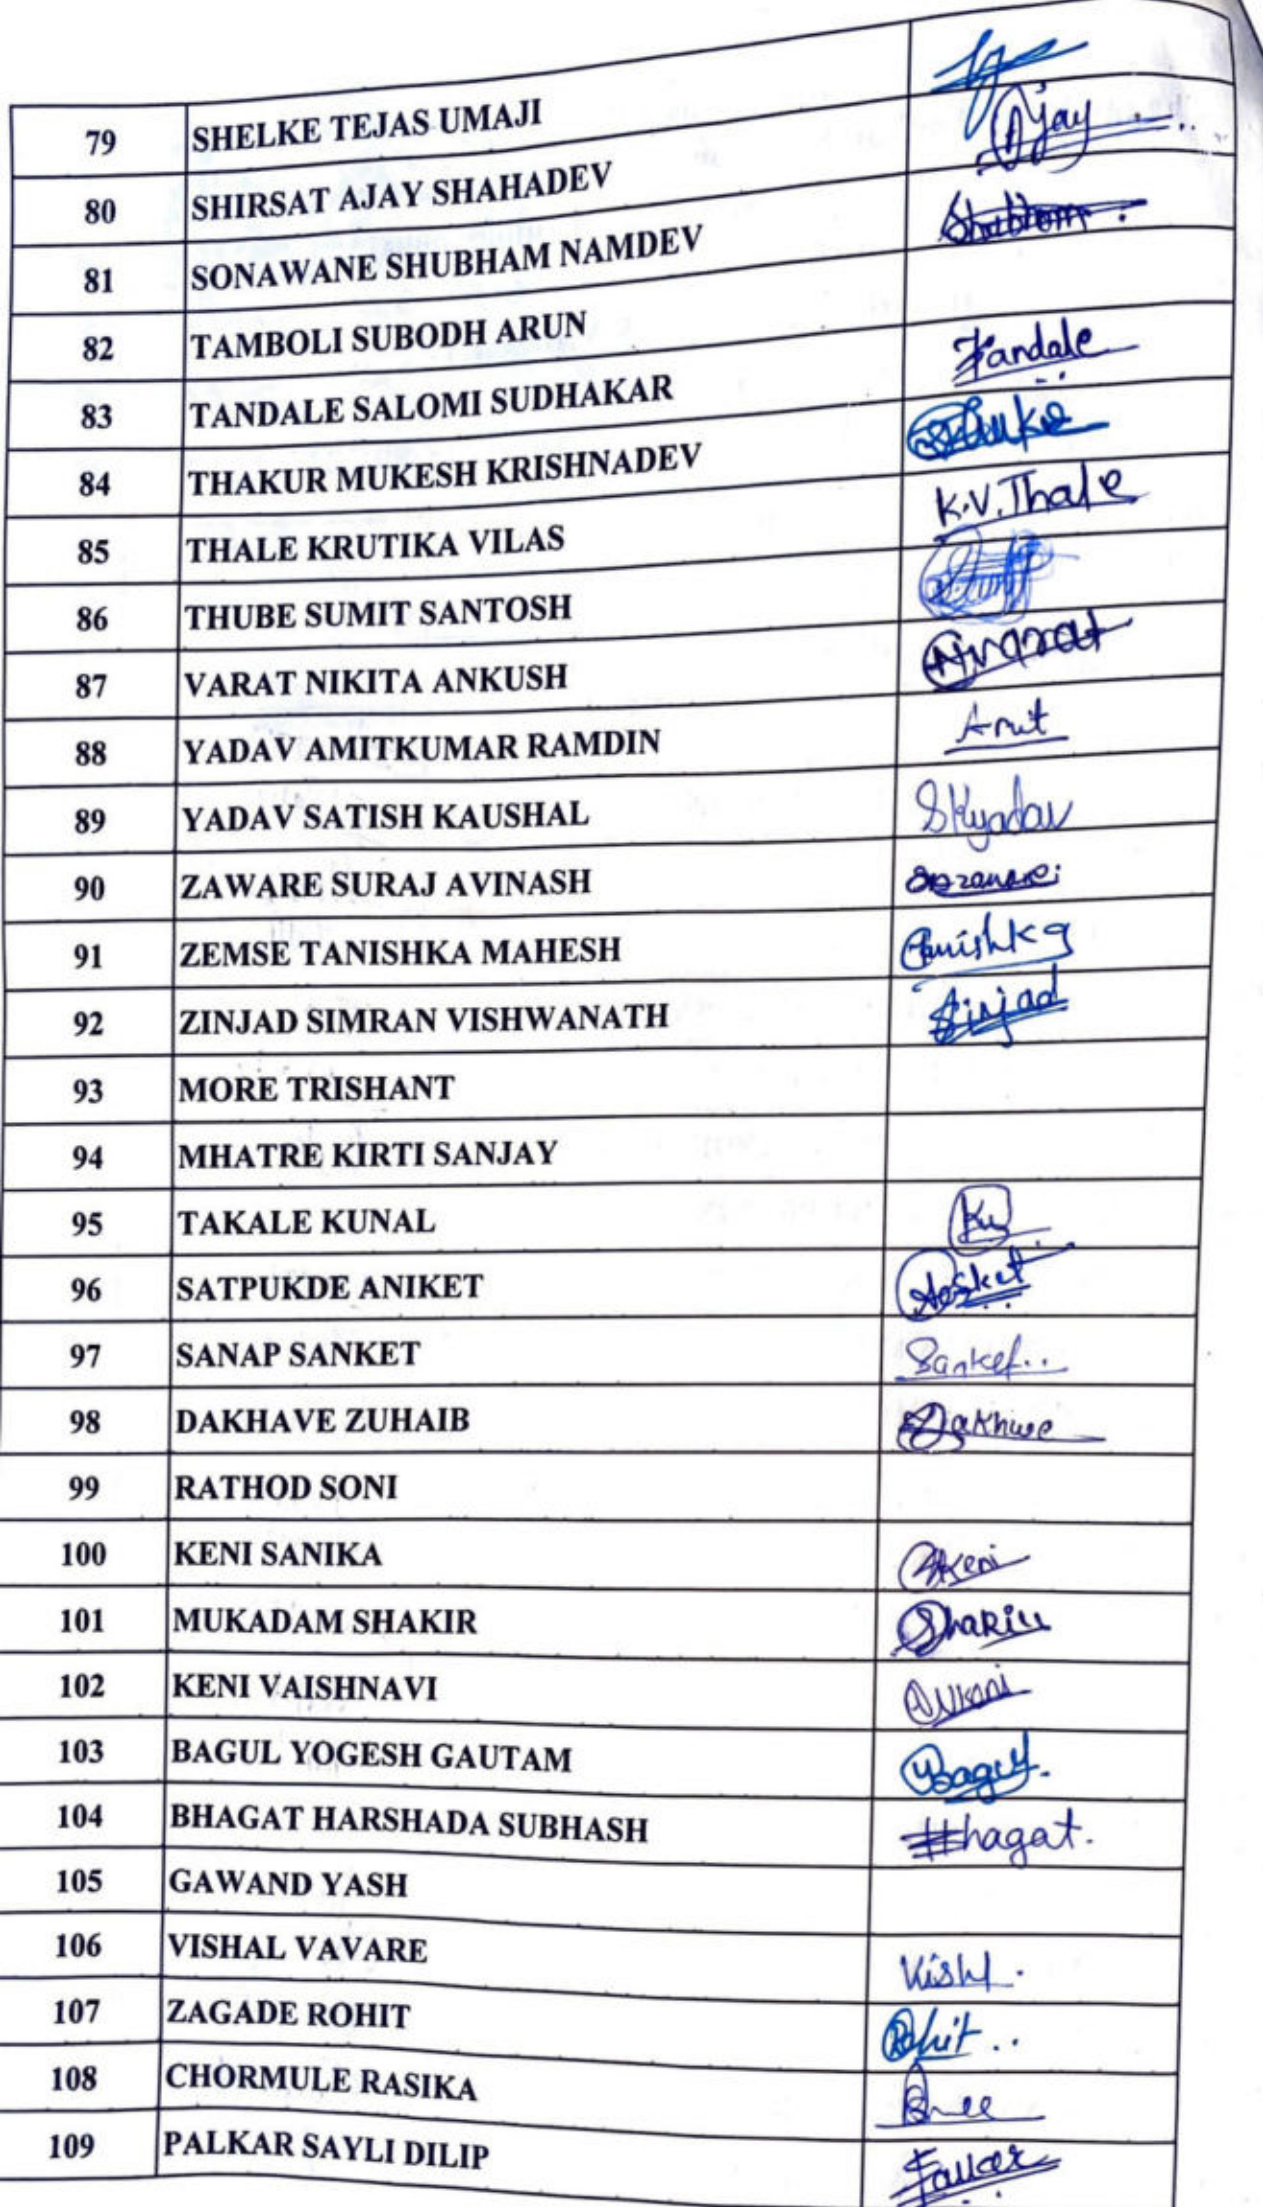 79 SHELKE TEJAS UMAJI
80 SHIRSAT AJAY SHAHADEV Ajay
81 SONAWANE SHUBHAM NAMDEV Shubham
82 TAMBOLI SUBODH ARUN
83 TANDALE SALOMI SUDHAKAR Tandale
84 THAKUR MUKESH KRISHNADEV
85 THALE KRUTIKA VILAS K.V.Thale
86 THUBE SUMIT SANTOSH
87 VARAT NIKITA ANKUSH
88 YADAV AMITKUMAR RAMDIN Amit
89 YADAV SATISH KAUSHAL SKyadav
90 ZAWARE SURAJ AVINASH
91 ZEMSE TANISHKA MAHESH
92 ZINJAD SIMRAN VISHWANATH
93 MORE TRISHANT
94 MHATRE KIRTI SANJAY
95 TAKALE KUNAL Ku
96 SATPUKDE ANIKET
97 SANAP SANKET Sanket..
98 DAKHAVE ZUHAIB
99 RATHOD SONI
100 KENI SANIKA
101 MUKADAM SHAKIR
102 KENI VAISHNAVI
103 BAGUL YOGESH GAUTAM
104 BHAGAT HARSHADA SUBHASH
105 GAWAND YASH
106 VISHAL VAVARE
107 ZAGADE ROHIT Rohit..
108 CHORMULE RASIKA
109 PALKAR SAYLI DILIP